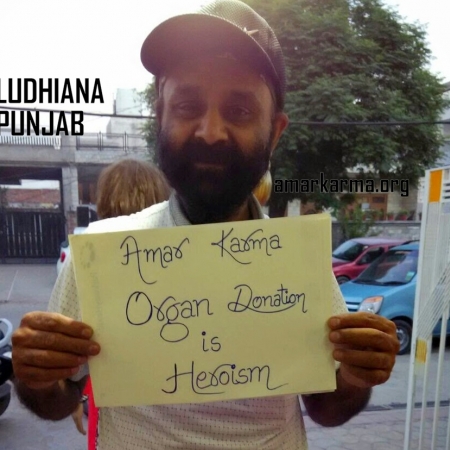 LUDHIANA
PUNJAB
amarkarma.org
Amar Karma
Organ Donation
is
Heroism